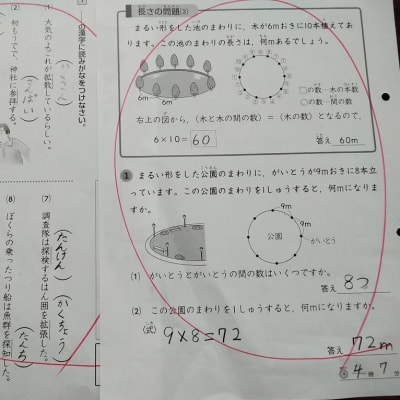 長さの問題(3)
まるい形をした池のまわりに，木が6mおきに10本植えてあ
ります。この池のまわりの長さは，何mあるでしょう。
6m 6m
○の数…木の本数
○の数…間の数
右上の図から，(木と木の間の数)＝(木の数) となるので，
6×10＝60
答え 60m
1 まるい形をした公園のまわりに，がいとうが9mおきに8本立
っています。この公園のまわりを1しゅうすると，何mになります
か。
9m
9m
公園
がいとう
(1) がいとうとがいとうの間の数はいくつですか。
答え 8つ
(2) この公園のまわりを1しゅうすると，何mになりますか。
(式) 9×8=72
答え 72m
4時7分
の漢字に読みがなをつけなさい。
(1) 大気のよごれが拡散しているらしい。
(2) 初もうで，神社に参拝する。
(さんぱい)
(7) 調査隊は探検するはん囲を拡張した。
(たんけん) (かくちょう)
(8) ぼくらの乗ったつり船は魚群を探知した。
(たんち)